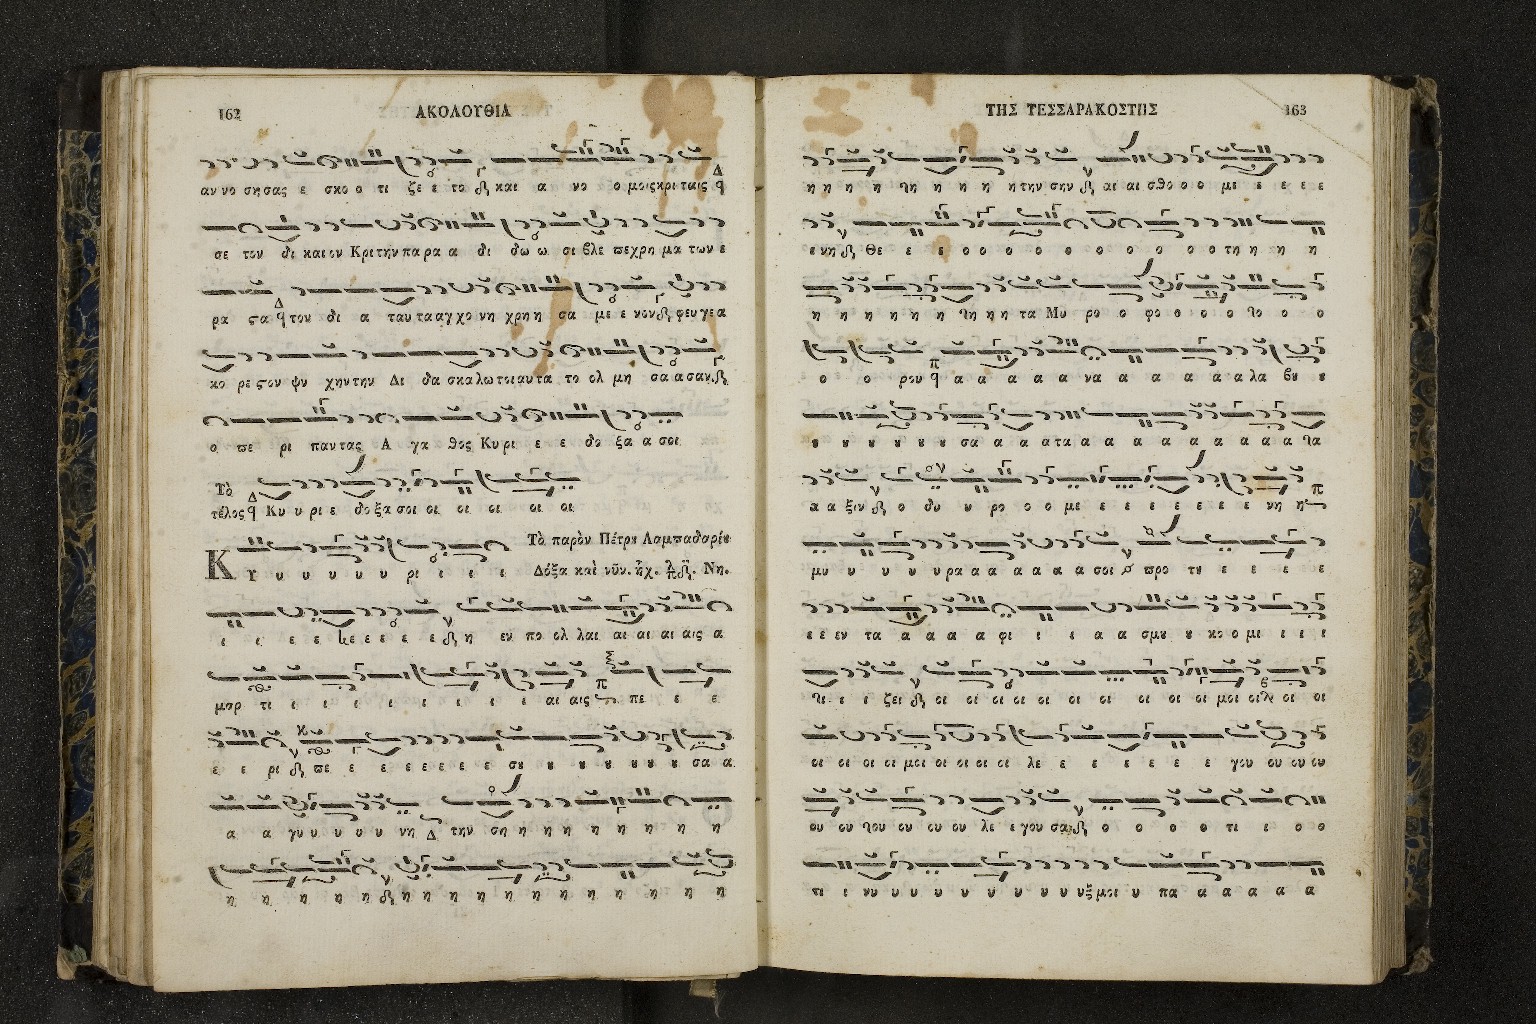 162 ΑΚΟΛΟΥΘΙΑ
αν νο σησας ε σκο ο τι ζε ε το και α νο ο μοις κριταις
σε τον δι καιον Κριτην παρα α δι δω ω σι βλε πε χρη μα των ε
ρα ϛα τον δι α ταυτα αγχο νη χρη η σα με ε νον φευ γε α
κο ρε ϛον ψυ χην την Δι δα σκα λω τοιαυτα το ολ μη σα α σαν
ο πε ρι παντας Α γα θος Κυ ρι ε ε δο ξα α σοι
Τὸ
τέλος Κυ υ ρι ε δοξα σοι οι οι οι οι οι
Τὸ παρὸν Πέτρȣ Λαμπαδαρίȣ
Κ Υ υ υ υ υ υ ρι ι ι ι Δόξα καὶ νῦν. ἦχ. Νη.
ι ι ε ε ε ε ε ε ε η εν πο ολ λαι αι αι αι αις α
μαρ τι ι ι ι ι ι ι ι ι αι αις πε ε ε
ε ε ρι πε ε ε ε ε ε ε σȣ ȣ ȣ ȣ ȣ ȣ ȣ σα α
α α γυ υ υ υ υ νη Δ την ση η η η η η η η η
η η η η η η η η η η η η η η η η η η
ΤΗΣ ΤΕΣΣΑΡΑΚΟΣΤΗΣ 163
η η η η λη η η η η την σην αι αι σθο ο ο μι ε ε ε ε
ε νη Θε ε ε ο ο ο ο ο ο ο ο ο ο ο τη η η η
η η η η η η λη η η τα Μυ ρο ο φο ο ο ο λο ο ο
ο ο ρου α α α α α να α α α α α λα βȣ ȣ ȣ
ȣ ȣ ȣ ȣ ȣ ȣ σα α α α τα α α α α α α α α α λα
α α ξιν ο δυ υ ρο ο ο με ε ε ε ε ε ε ε νη η
μυ υ υ υ υ ρα α α α α α α σοι προ τȣ ε ε ε ε
ε ε εν τα α α α α φι ι ι α α σμȣ ȣ κο ο μι ι ι ι
λι ι ι ζει οι οι οι οι οι οι οι οι οι οι οι οι μοι οι οι οι
οι οι οι οι μοι οι οι οι οι λε ε ε ε ε ε ε γου ου ου ου
ου ου λου ου ου ου λε ε γου σα ο ο ο ο τι ι ο ο
τι ι νυ υ υ υ υ υ υ υ υ υξ μοι υ πα α α α α α